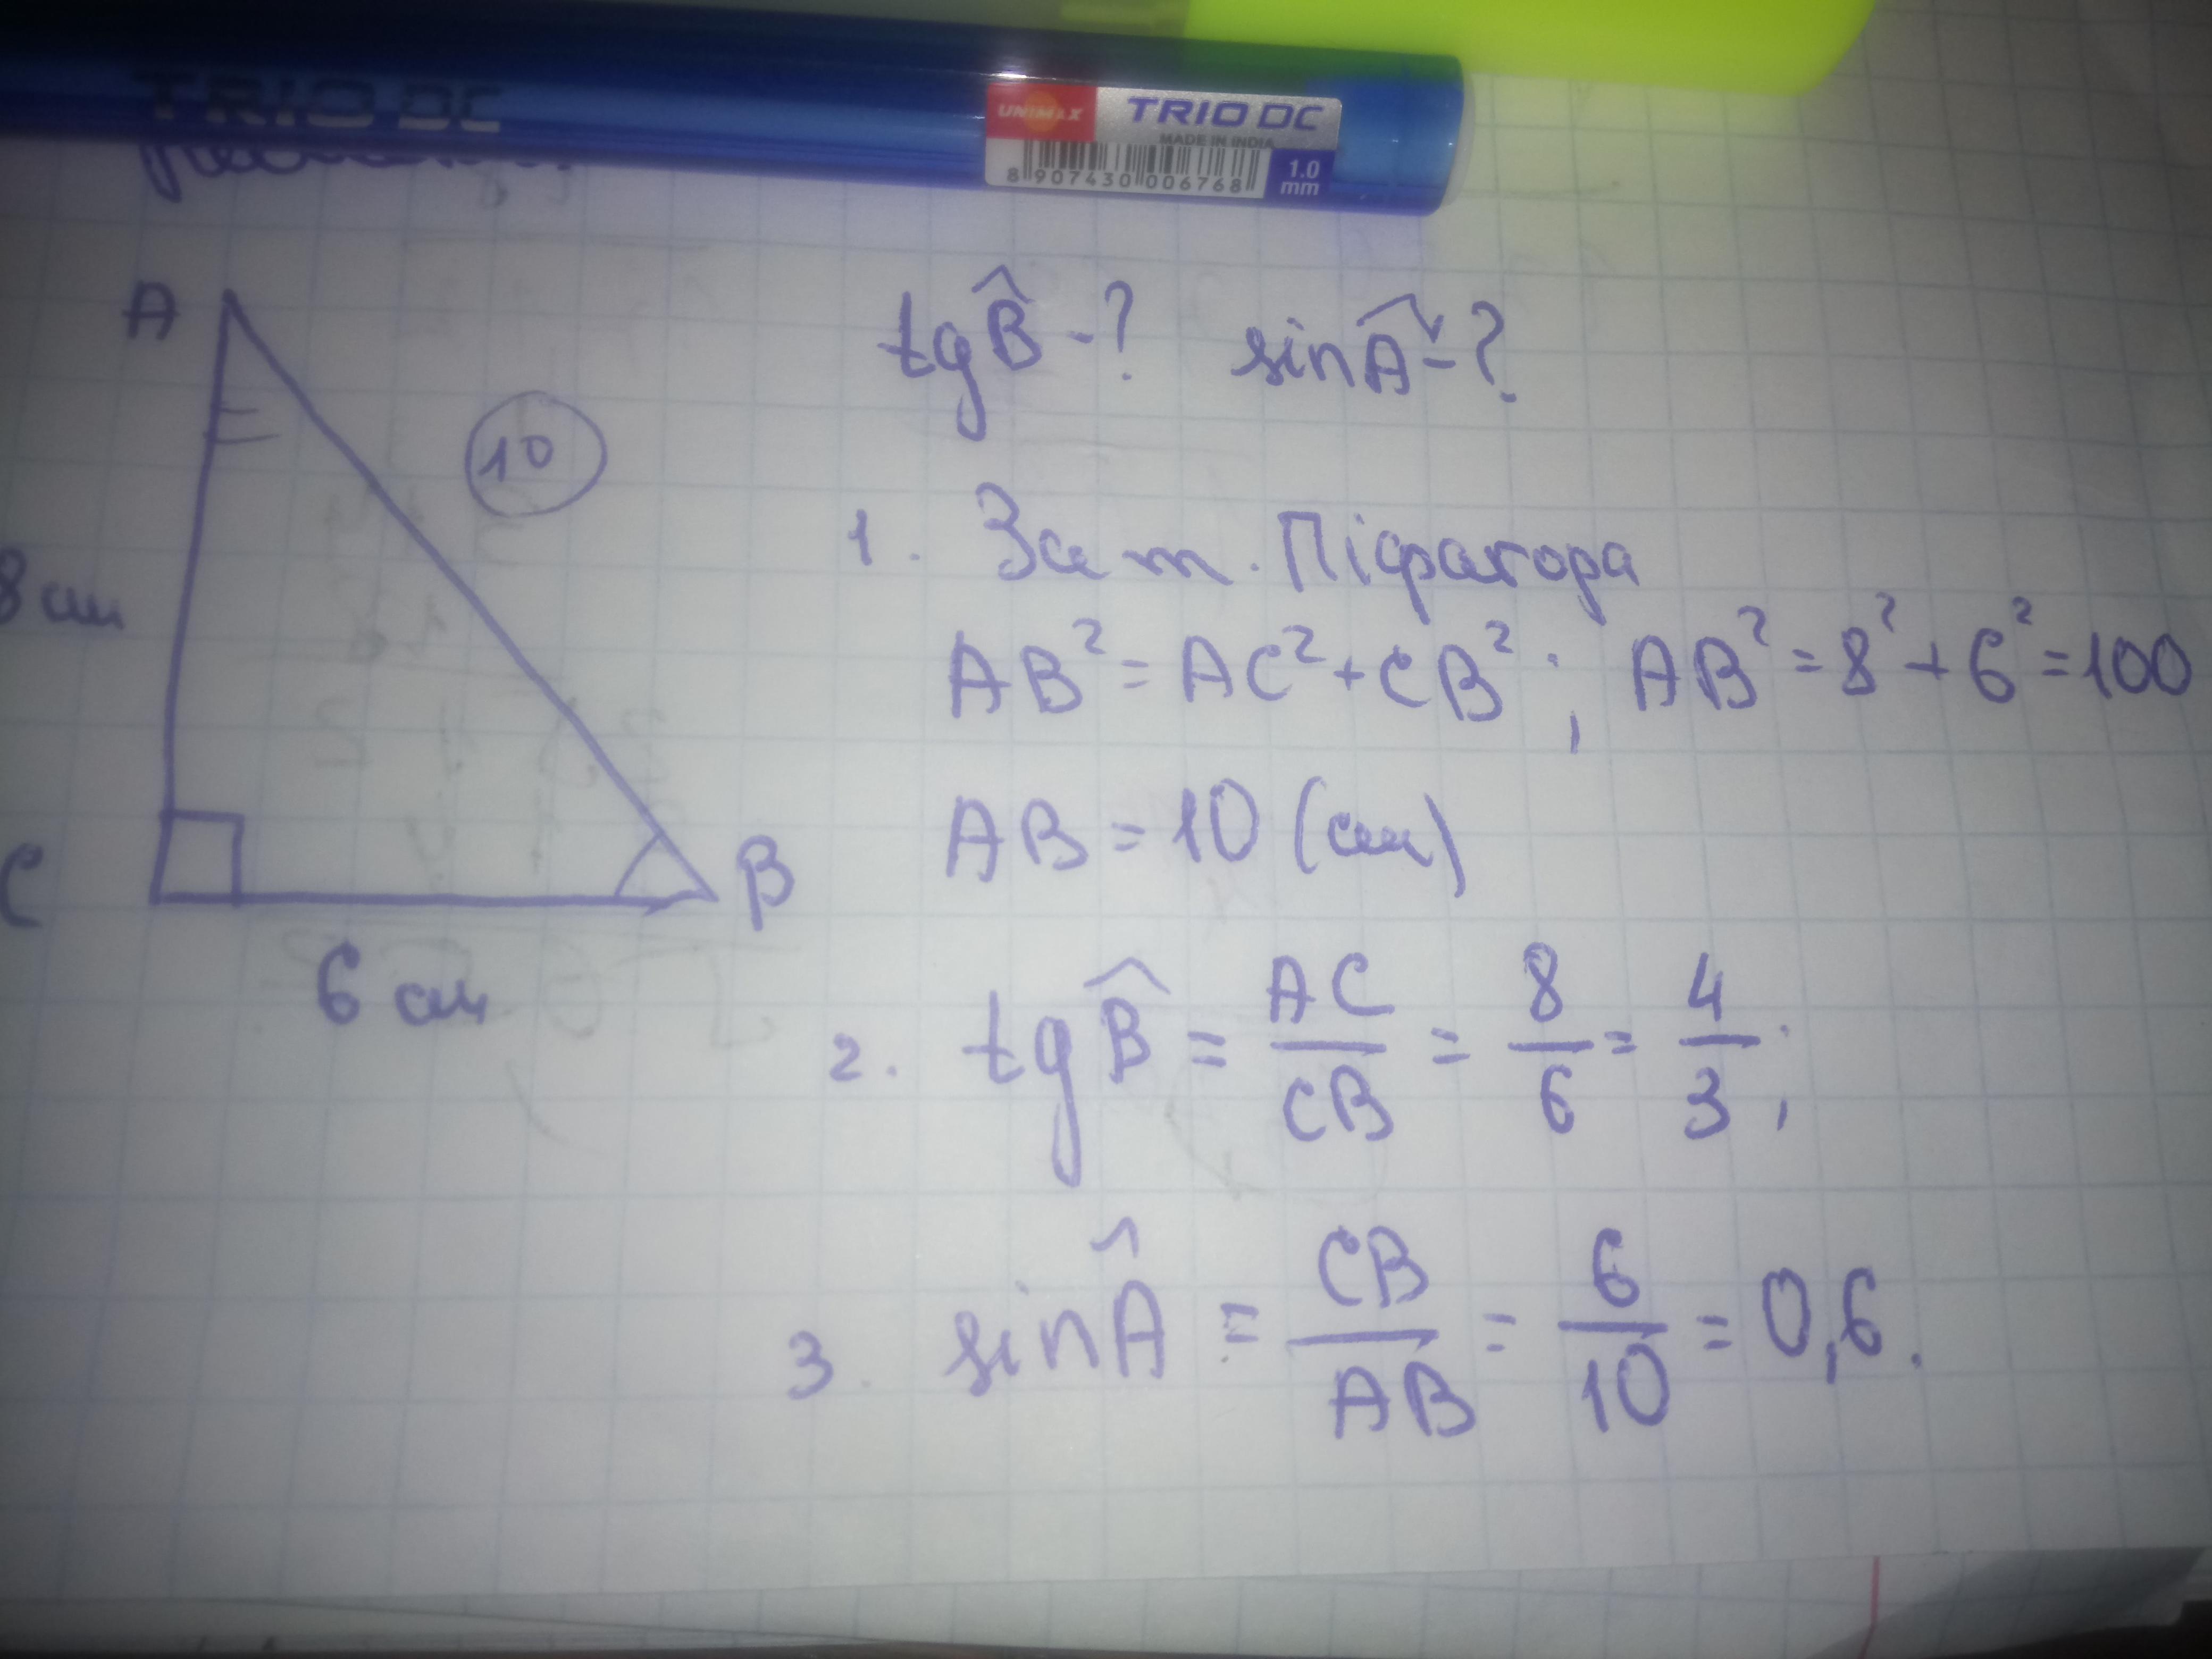 TRIO DC
UNIMAX
TRIO DC
MADE IN INDIA
8 907430 006768
1.0
mm
A
10
8 см
C
B
6 см
tg B̂ - ? sin Â - ?
1. За т. Піфагора
AB² = AC² + CB²; AB² = 8² + 6² = 100
AB = 10 (см)
2. tg B̂ = AC/CB = 8/6 = 4/3;
3. sin Â = CB/AB = 6/10 = 0,6.